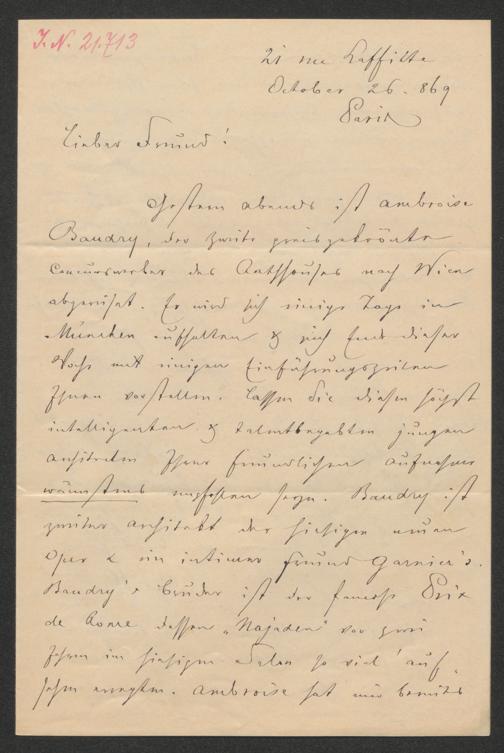 I.N. 21.713
21 rue Laffitte
October 26. 869
Paris
Lieber Freund!
Gestern abends ist Ambroise
Baudry, der zweite preisgekrönte
Concurswerber des Rathhauses nach Wien
abgereist. Er wird sich einige Tage in
München aufhalten & sich Ende dieser
Woche mit einigen Einführungszeilen
Ihnen vorstellen. Lassen Sie diesen höchst
intelligenten & talentbegabten jungen
Architekten Ihrer freundlichen Aufnahme
wärmstens empfohlen seyn. Baudry ist
zweiter Architekt der hiesigen neuen
Oper & ein intimer Freund Garnier's.
Baudry's Bruder ist der famose Prix
de Rome dessen „Najaden" vor zwei
Jahren im hiesigen Salon so viel Auf-
sehen erregten. Ambroise hat mir bereits